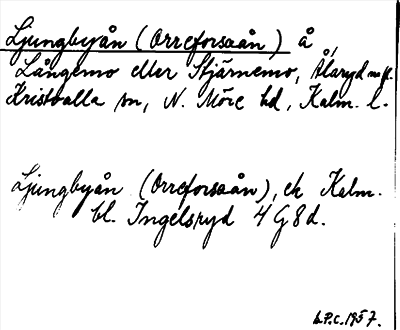 Ljungbyån (Orreforsaån) å,
Långemo eller Stjärnemo, Ålaryd m fl.
Kristvalla sn, N. Möre hd, Kalm. l.
Ljungbyån (Orreforsaån), ek Kalm.
bl. Ingelsryd 4 G 8 d.
L.P.C. 1957.